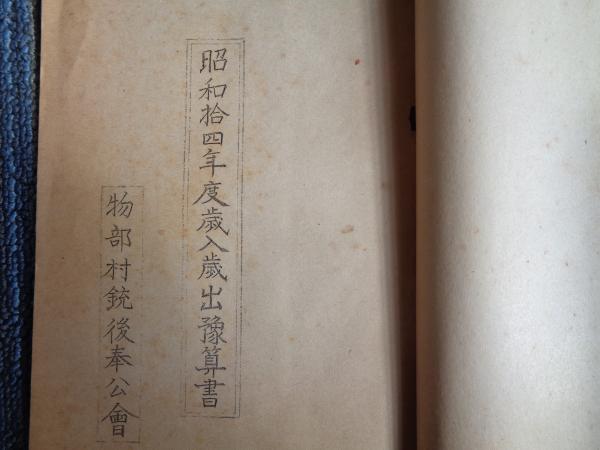 昭和拾四年度歳入歳出豫算書
物部村銃後奉公會